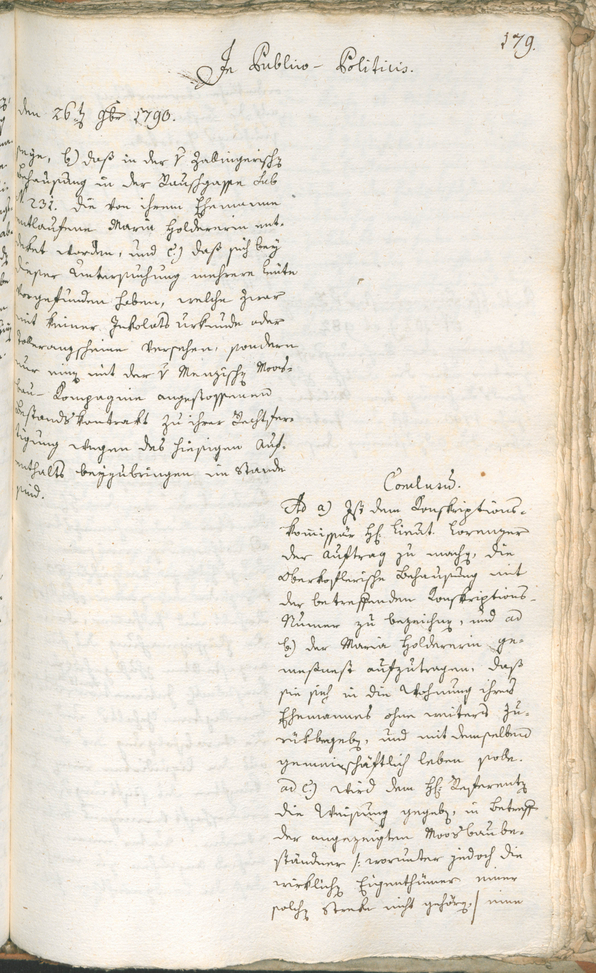 179.
In Publico-Politicis.
den 26ten 9br 1790.
seye, b) daß in der v Zabingerisch
Behausung in der Rauschgasse sub
N. 231. die von ihrem Ehemanne
entlaufene Maria Holdererin ent-
deket worden, und c) daß sich bey
dieser Untersuchung mehrere Leute
vorgefunden haben, welche zwar
mit keiner Inkolats Urkunde oder
Toleranzscheine versehen, sondern
nur einen mit der v Menzisch Moos-
bau-Kompagnie angestossenen
Bestandskontrakt zu ihrer Rechtfer-
tigung wegen des hiesigen Auf-
enthalts beyzubringen im Stande
sind.
Conclusum.
Ad a) Ist dem Konskriptions-
kommissär H. Lieut. Lorenzer
der Auftrag zu machen, die
Oberkoflerische Behausung mit
der betreffenden Konskriptions-
Numer zu bezeichnen, und ad
b) der Maria Holdererin ge-
messenst aufzutragen, daß
sie sich in die Wohnung ihres
Ehemannes ohne weiters zu-
rükbegeben, und mit demselben
gemeinschäftlich leben solle.
ad c) wird dem H. Referenten
die Weisung gegeben, in Betreff
der angezeigten Moosbaube-
ständner /: worunter jedoch die
wirklichen Eigenthümer einer
solchen Streke nicht gehören :/ eine